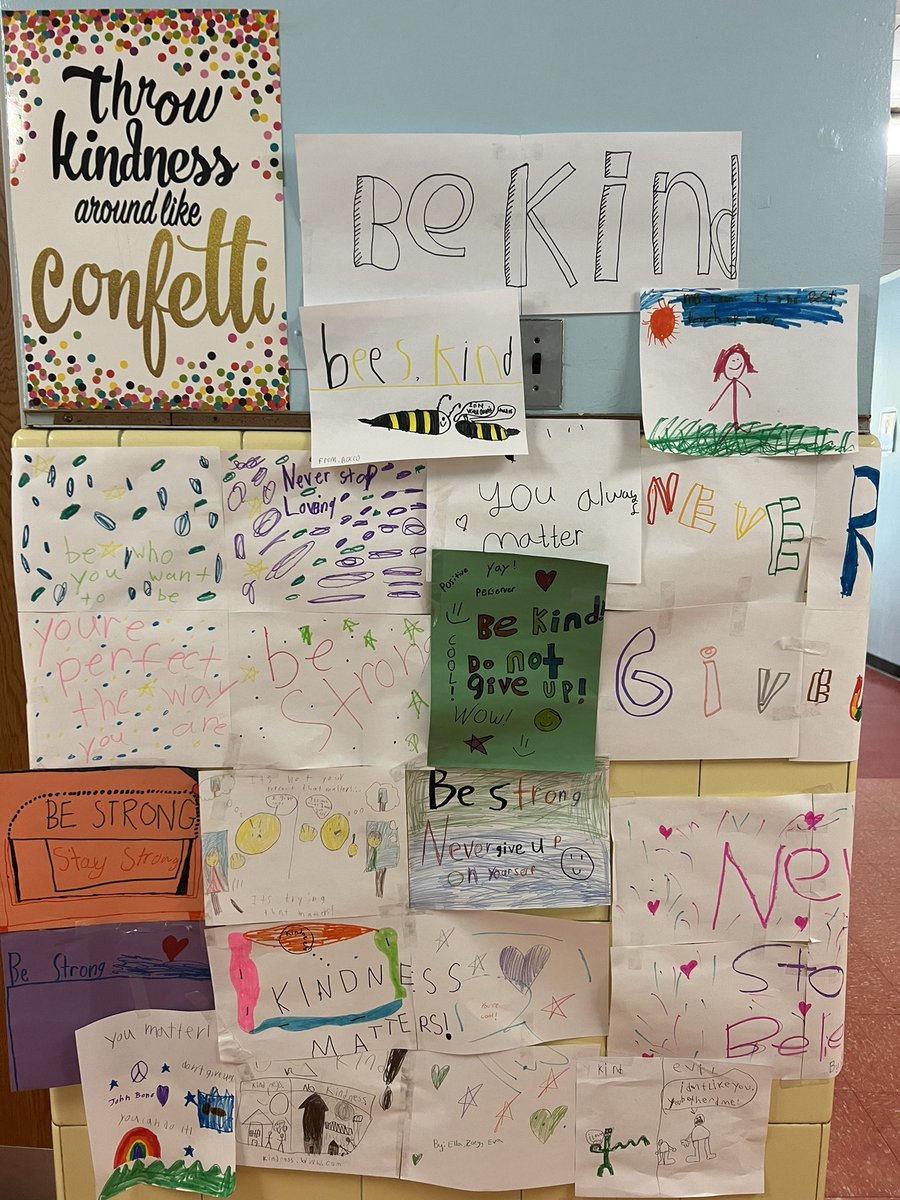 Throw
kindness
around like
Confetti
Be Kind
bees, kind
FROM, ROCCO
is the Best
Never stop
Loving
be who
you want
to be
You always
matter
NEVER
R
Positive
Yay!
Perserver
Be Kind!
COOL!
Do not
give up!
Wow!
youre
perfect
the way
you are
be
strong
Give
BE STRONG
Stay Strong
It's not your
percent that matters...
Its trying
that matters!
Be strong
Never give up
on yourself
Nev
Sto
Bele
By
Be Strong
Kind
KINDNESS
MATTERS!
You're
cool!
you matter!
don't give up!
John Bone
you can do it!
Kind
vs
Kindness
No
Kindness
kindness.www.com
By: Ella, Zoey, Eva
kind
evil
i don't like you,